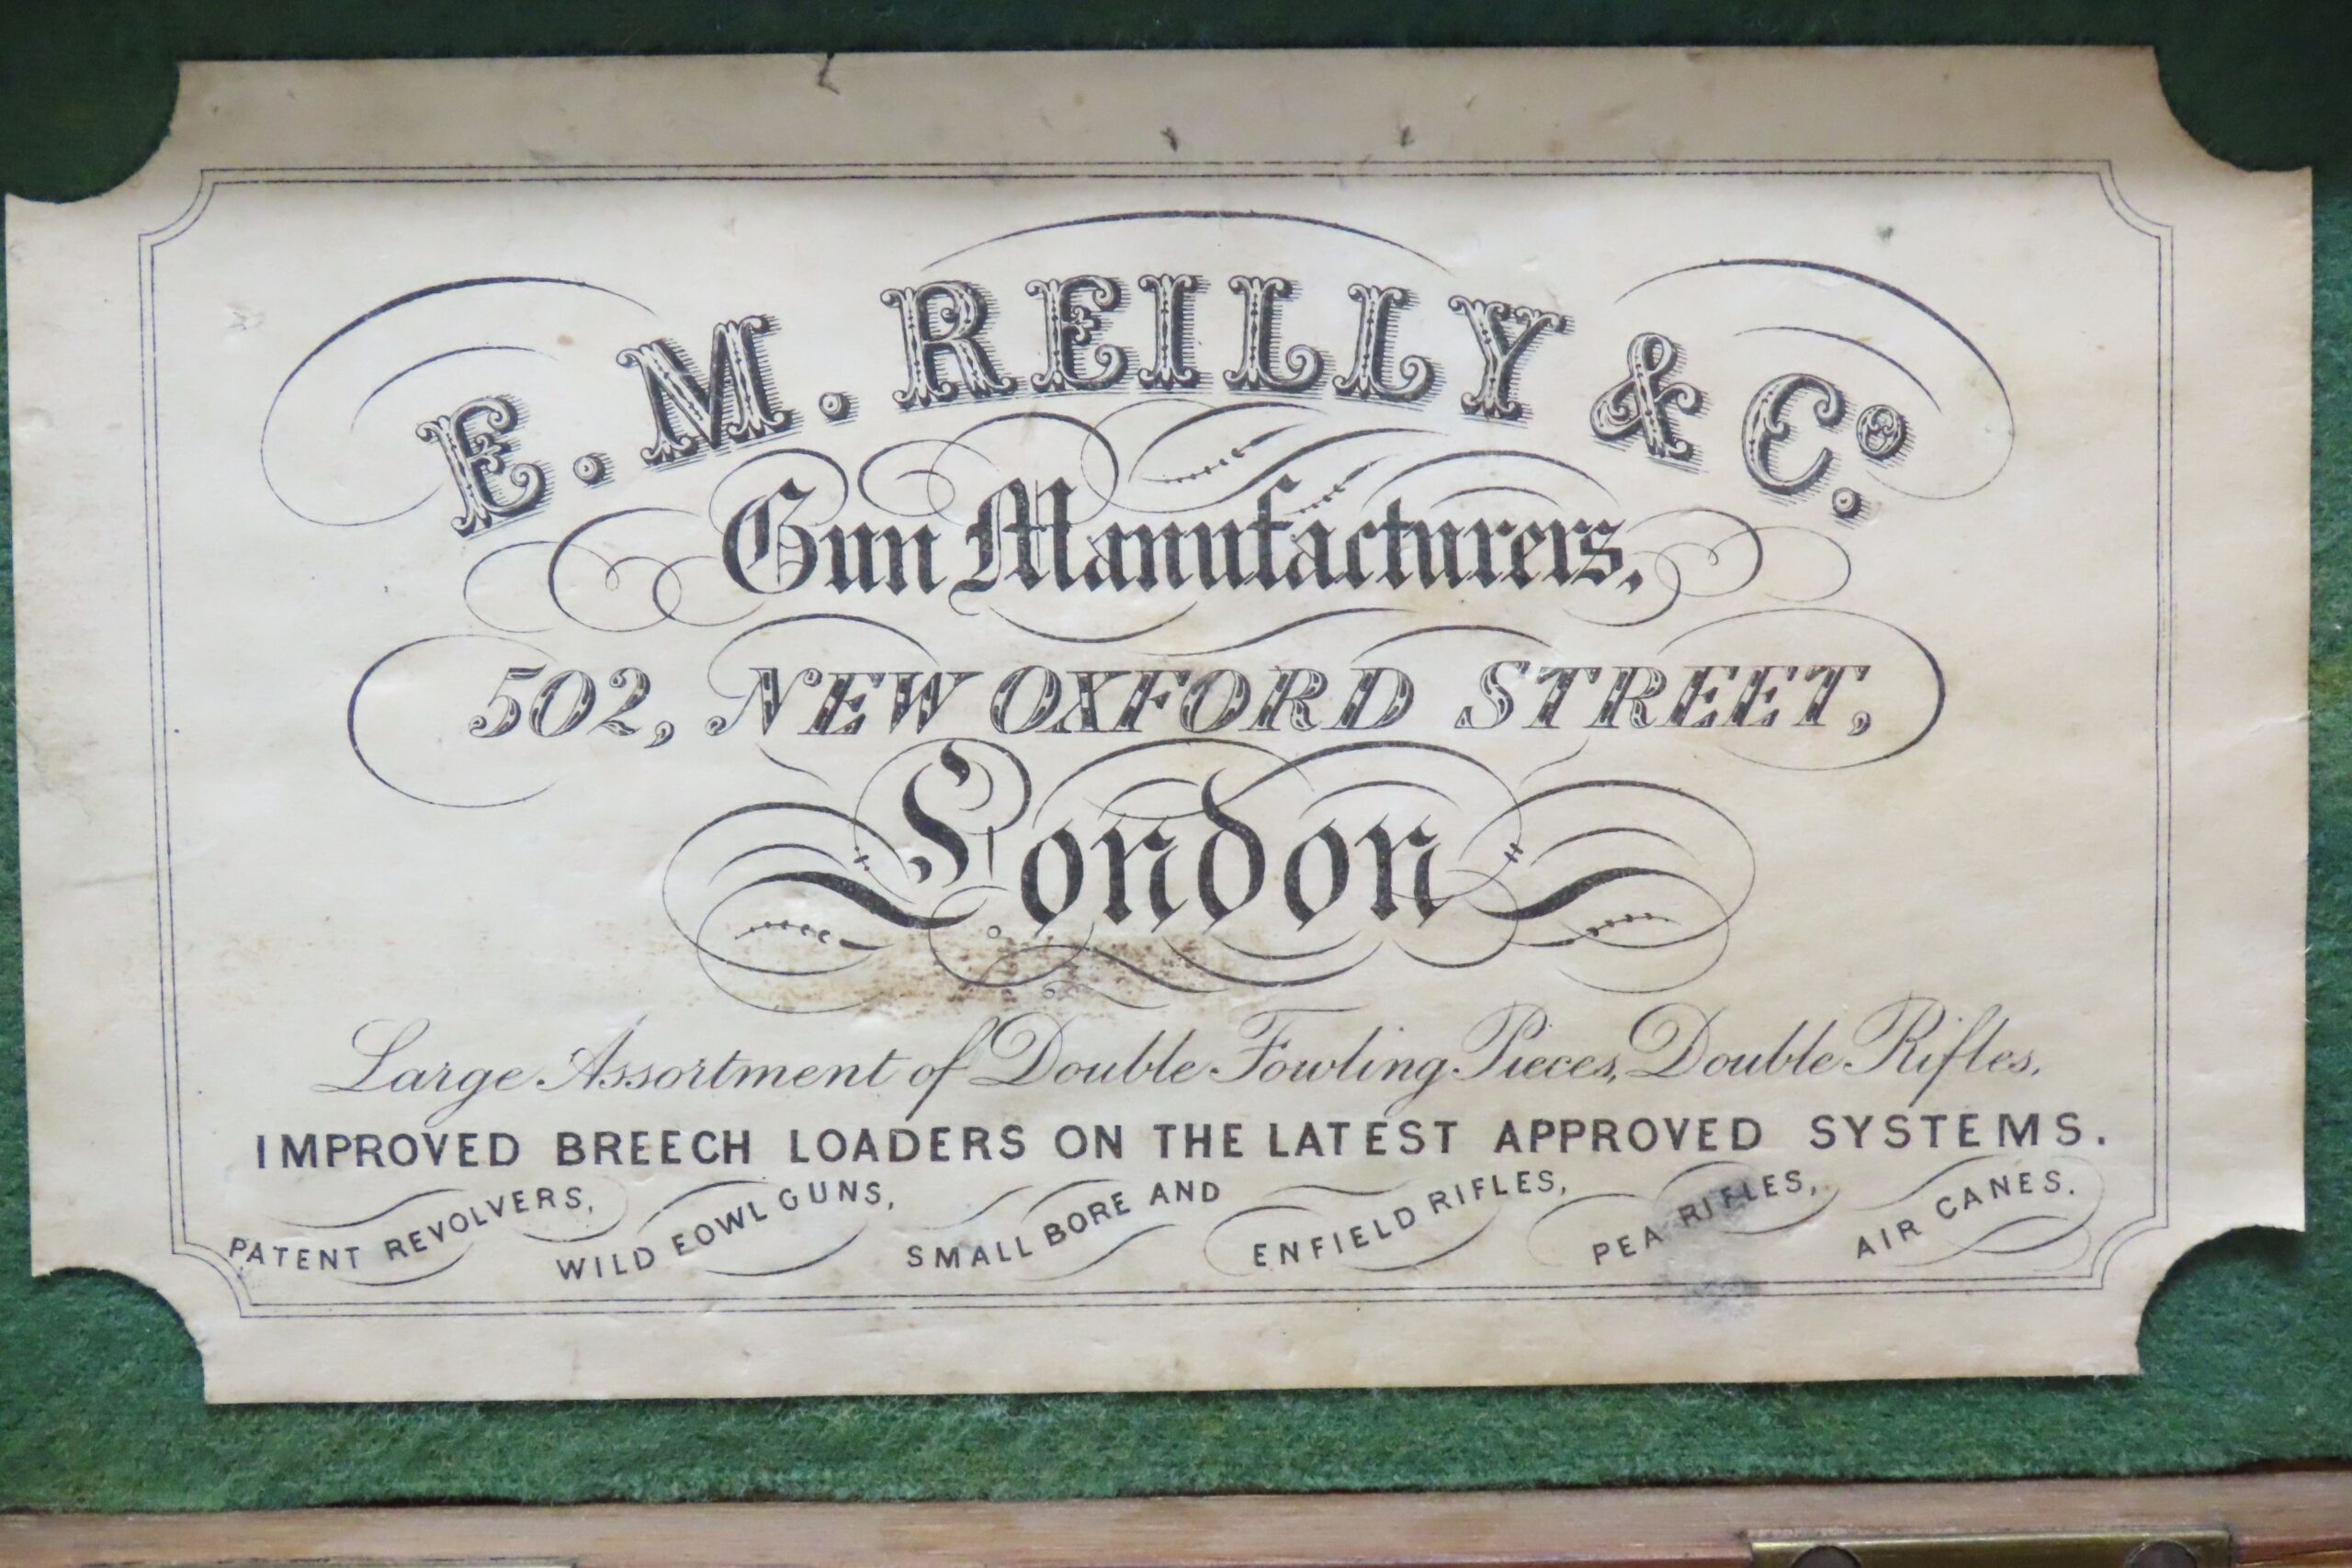 E. M. REILLY & Co.
Gun Manufacturers,
502, NEW OXFORD STREET,
London
Large Assortment of Double Fowling Pieces, Double Rifles,
IMPROVED BREECH LOADERS ON THE LATEST APPROVED SYSTEMS.
PATENT REVOLVERS, WILD FOWL GUNS, SMALL BORE AND ENFIELD RIFLES, PEA RIFLES, AIR CANES.